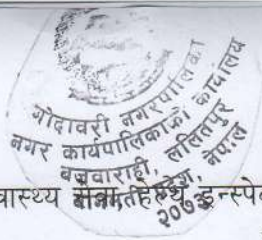 गोदावरी नगरपालिका
नगर कार्यपालिकाको कार्यालय
बज्रवाराही, ललितपुर
बागमती प्रदेश, नेपाल
२०७३
वास्थ्य सेवा, हेल्थ इन्स्पे